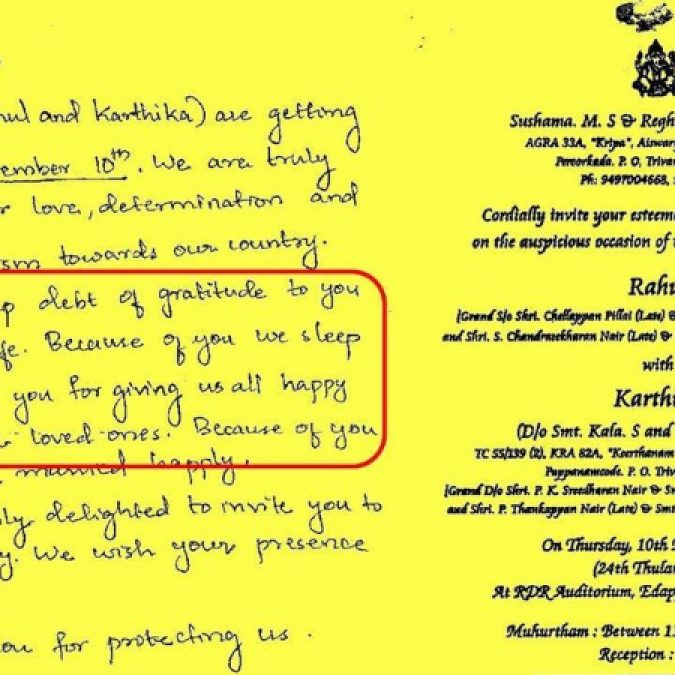 ul and Karthika) are getting
ember 10th. We are truly
r love, determination and
ism towards our country.
p debt of gratitude to you
fe. Because of you we sleep
you for giving us all happy
loved ones. Because of you
married happly.
ly delighted to invite you to
y. We wish your presence
ou for protecting us.
Sushama. M. S & Regh
AGRA 33A, "Kripa", Aiswary
Peroorkada. P. O, Triva
Ph: 9497004668,
Cordially invite your esteeme
on the auspicious occasion of t
Rahu
(Grand S/o Shri. Chellappan Pillai (Late) &
and Shri. S. Chandrasekharan Nair (Late) &
with
Karthi
(D/o Smt. Kala. S and
TC 55/139 (2), KRA 82A, "Keerthanam
Pappanamcode. P. O. Triv
(Grand D/o Shri. P. K. Sreedharan Nair & Sm
and Shri. P. Thankappan Nair (Late) & Smt
On Thursday, 10th
(24th Thula
At RDR Auditorium, Edap
Muhurtham : Between 11
Reception :